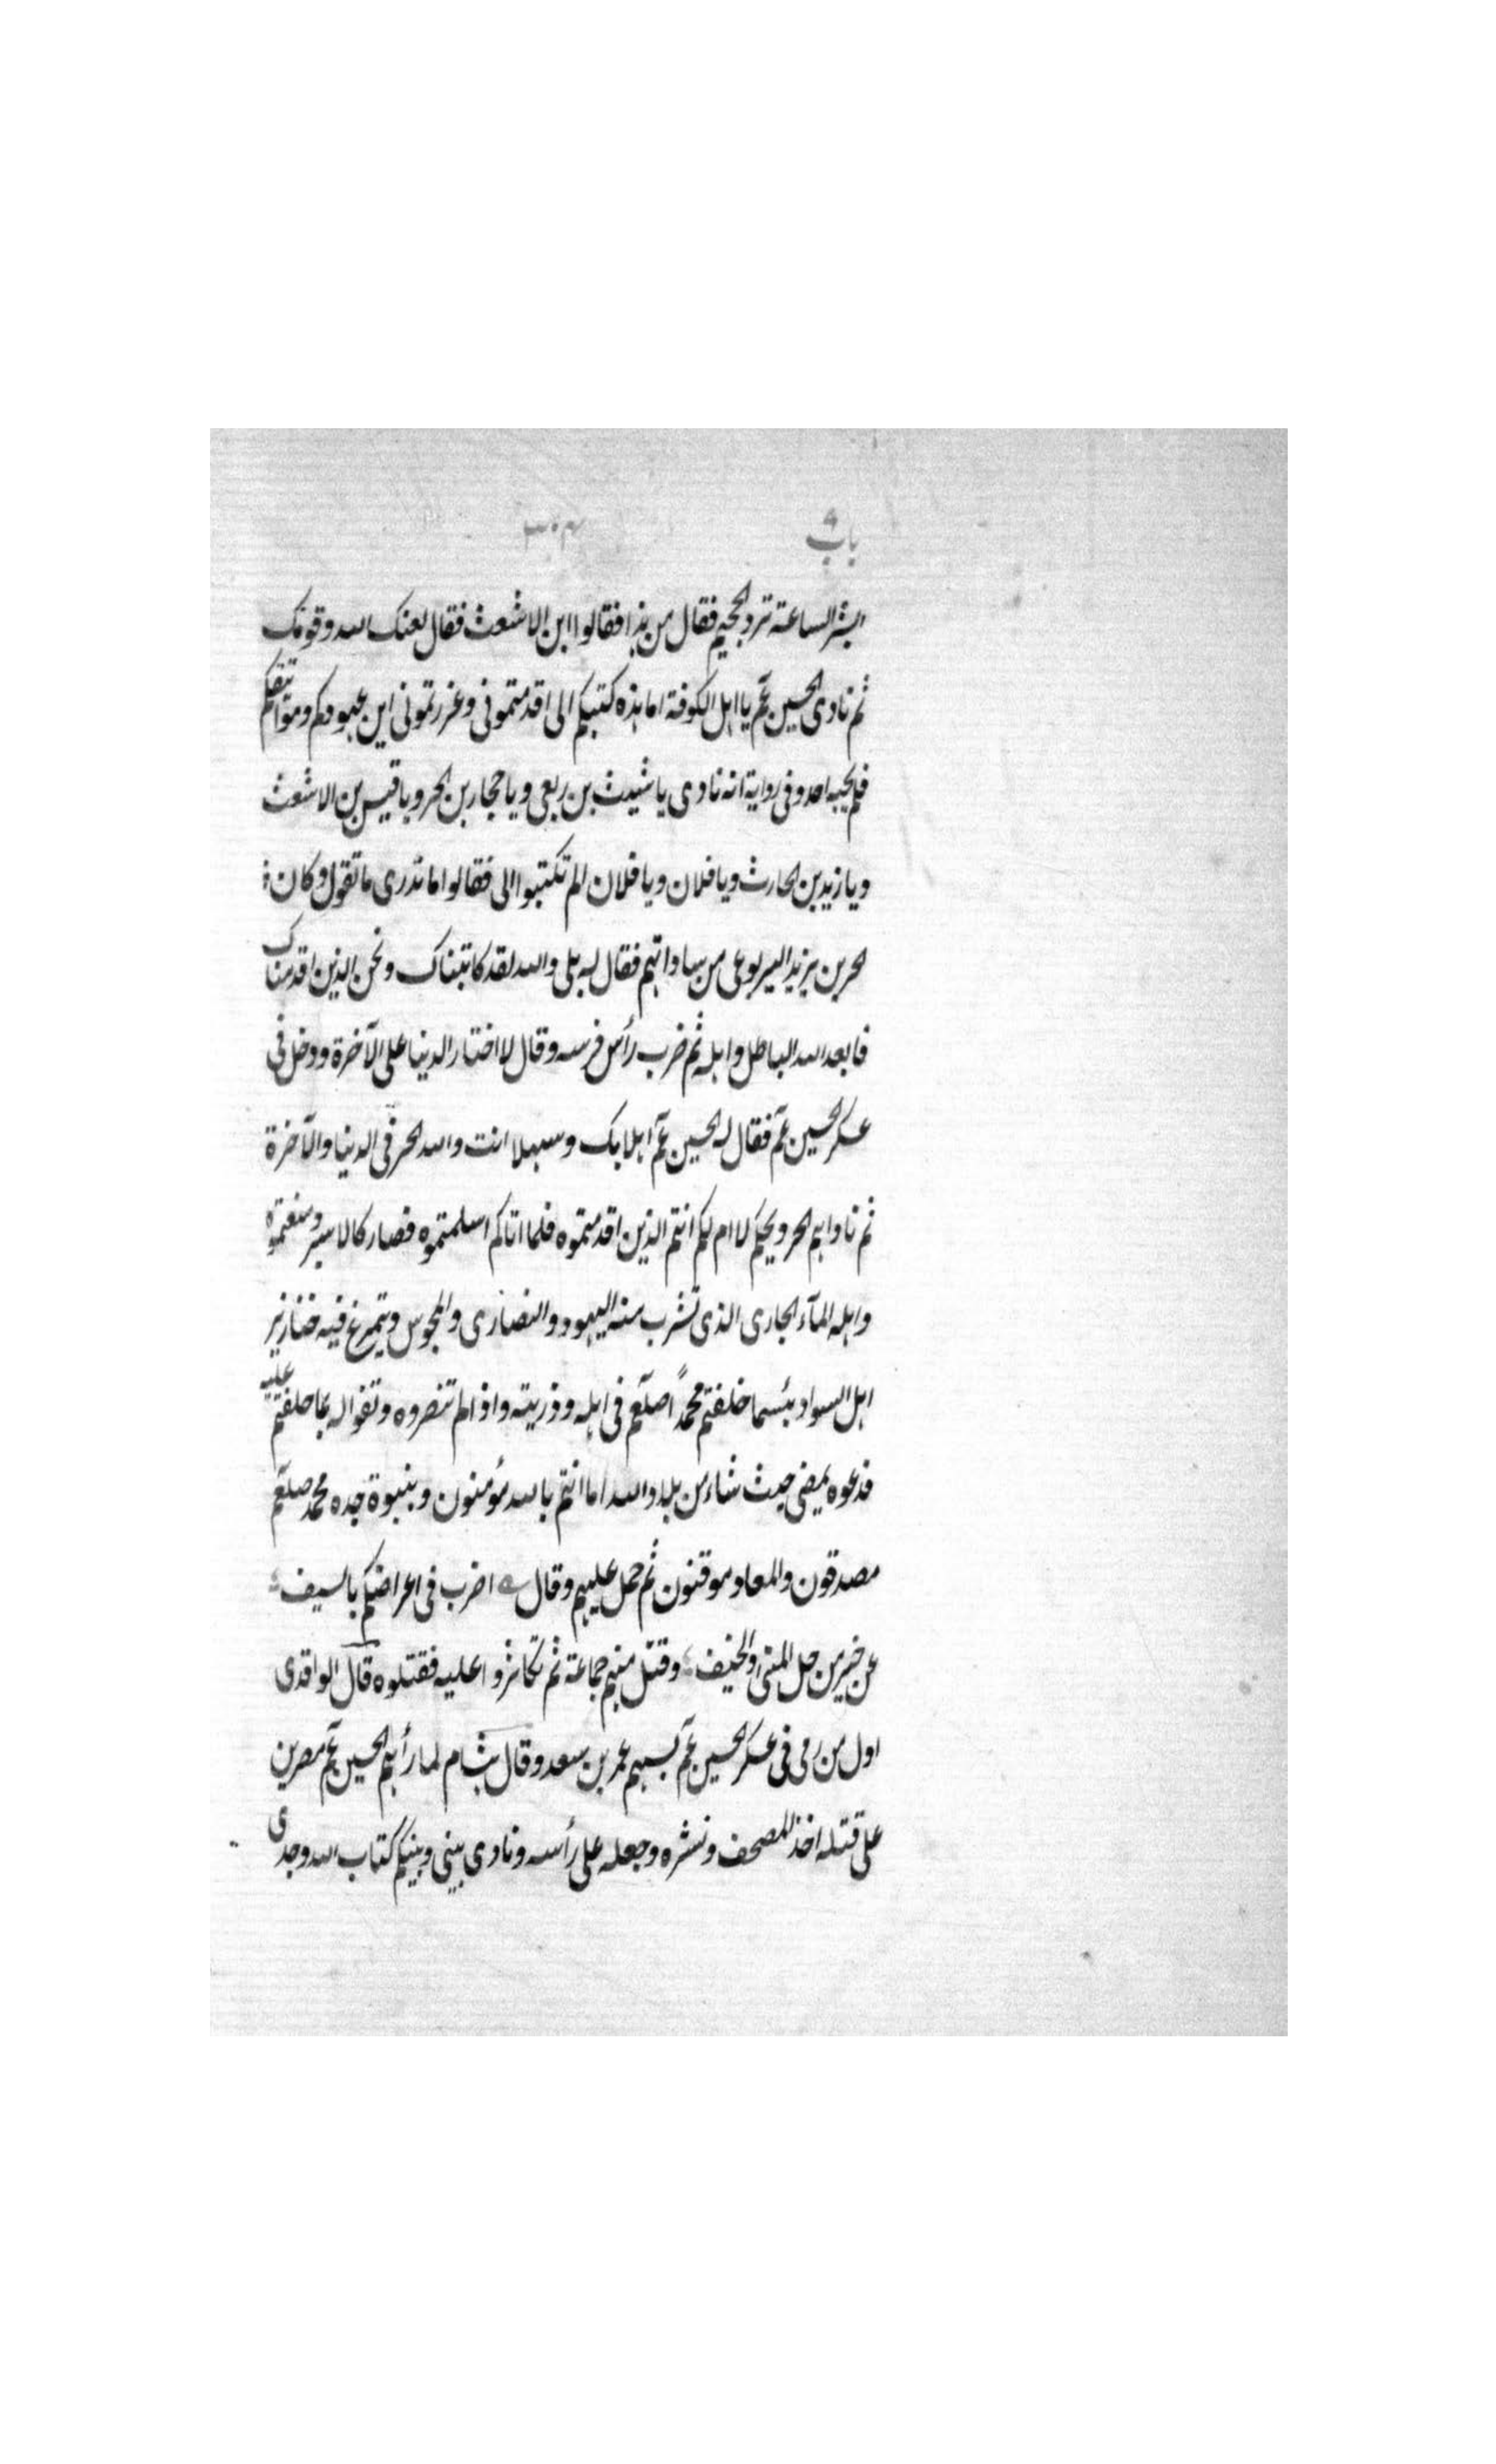 باب ٩ ٣٠٣
ابشر الساعة ترد الجحيم فقال من هذا فقالوا ابن الاشعث فقال لعنك الله وقومك
ثم نادى الحسين عم يا اهل الكوفة اما هذه كتبكم الى اقدمتمونى وغررتمونى اين عهودكم ومواثيقكم
فلم يجبه احد وفى رواية انه نادى يا شيث بن ربعى ويا حجار بن الحر ويا قيس بن الاشعث
ويا زيد بن الحارث ويا فلان ويا فلان الم تكتبوا الى فقالوا ما ندرى ما تقول وكان
الحر بن يزيد اليربوعى من ساداتهم فقال له بلى والله لقد كاتبناك ونحن الذين اقدمناك
فابعد الله الباطل واهله ثم ضرب رأس فرسه وقال لا اختار الدنيا على الآخرة ودخل فى
عسكر الحسين عم فقال له الحسين عم اهلا بك وسهلا انت والله الحر فى الدنيا والآخرة
ثم ناداهم الحر ويحكم لا ام لكم انتم الذين اقدمتموه فلما اتاكم اسلمتموه فصار كالاسير ومنعتموه
واهله المآء الجارى الذى تشرب منه اليهود والنصارى والمجوس ويتمرغ فيه خنازير
اهل السواد بئسما خلفتم محمداً صلعم فى اهله وذريته واذا لم تنصروه وتفوا له بما حلفتم عليه
فدعوه يمضى حيث شاء من بلاد الله اما انتم بالله مؤمنون وبنبوة جده محمد صلعم
مصدقون والمعاد موقنون ثم حمل عليهم وقال اضرب فى اعراضكم بالسيف
عن خير من حل المنى والخيف وقتل منهم جماعة ثم تكاثروا عليه فقتلوه قال الواقدى
اول من رمى فى عسكر الحسين عم بسهم عمر بن سعد وقال هشام لما رأهم الحسين عم مصرين
على قتله اخذ المصحف ونشره وجعله على رأسه ونادى بينى وبينكم كتاب الله وجدى